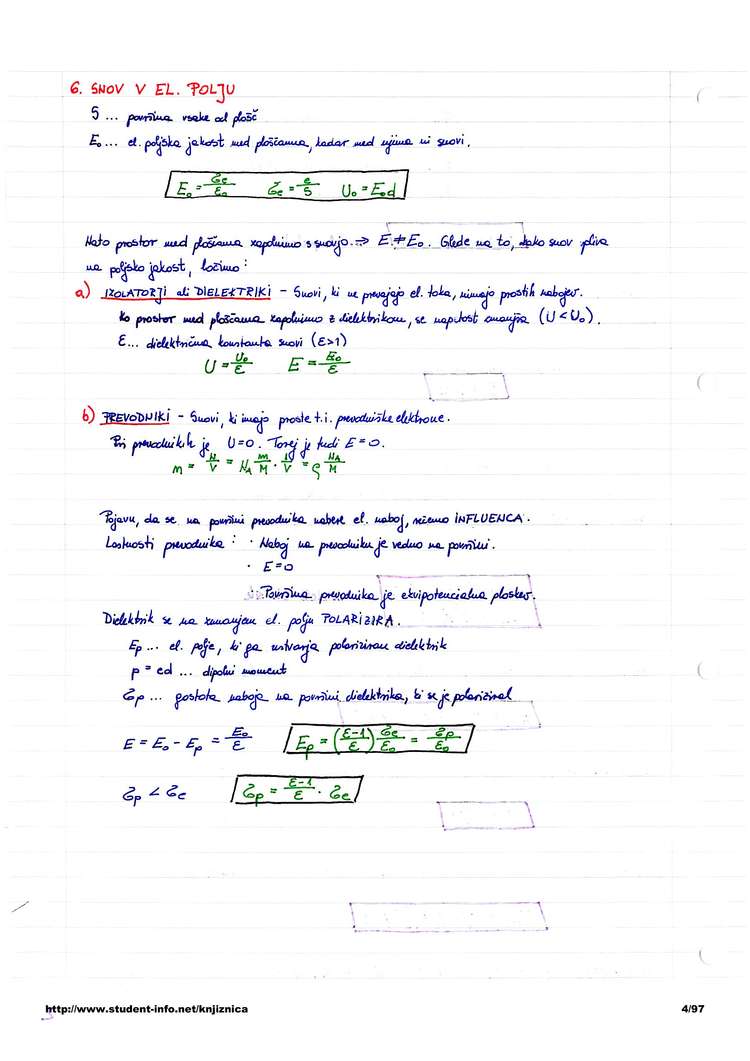 6. SNOV V EL. POLJU
S ... površina vsake od plošč
E₀ ... el. poljska jakost med ploščama, kadar med njima ni snovi.
E₀ = σe/ε₀  σe = e/S  U₀ = E₀d
Nato prostor med ploščama zapolnimo s snovjo. ⇒ E ≠ E₀. Glede na to, kako snov vpliva
na poljsko jakost, ločimo:
a) IZOLATORJI ali DIELEKTRIKI - Snovi, ki ne prevajajo el. toka, nimajo prostih nabojev.
Ko prostor med ploščama zapolnimo z dielektrikom, se napetost zmanjša (U < U₀).
ε ... dielektrična konstanta snovi (ε>1)
U = U₀/ε  E = E₀/ε
b) PREVODNIKI - Snovi, ki imajo proste t.i. prevodniške elektrone.
Pri prevodnikih je U=0. Torej je tudi E=0.
n = N/V = N_A m/M · 1/V = ρ N_A/M
Pojavu, da se na površini prevodnika nabere el. naboj, rečemo INFLUENCA.
Lastnosti prevodnika: · Naboj na prevodniku je vedno na površini.
· E=0
· Površina prevodnika je ekvipotencialna ploskev.
Dielektrik se na zunanjem el. polju POLARIZIRA.
Ep ... el. polje, ki ga ustvarja polariziran dielektrik
p = ed ... dipolni moment
σp ... gostota naboja na površini dielektrika, ki se je polariziral
E = E₀ - Ep = E₀/ε  Ep = (ε-1/ε) σe/ε₀ = σp/ε₀
σp < σe  σp = ε-1/ε · σe
http://www.student-info.net/knjiznica
4/97